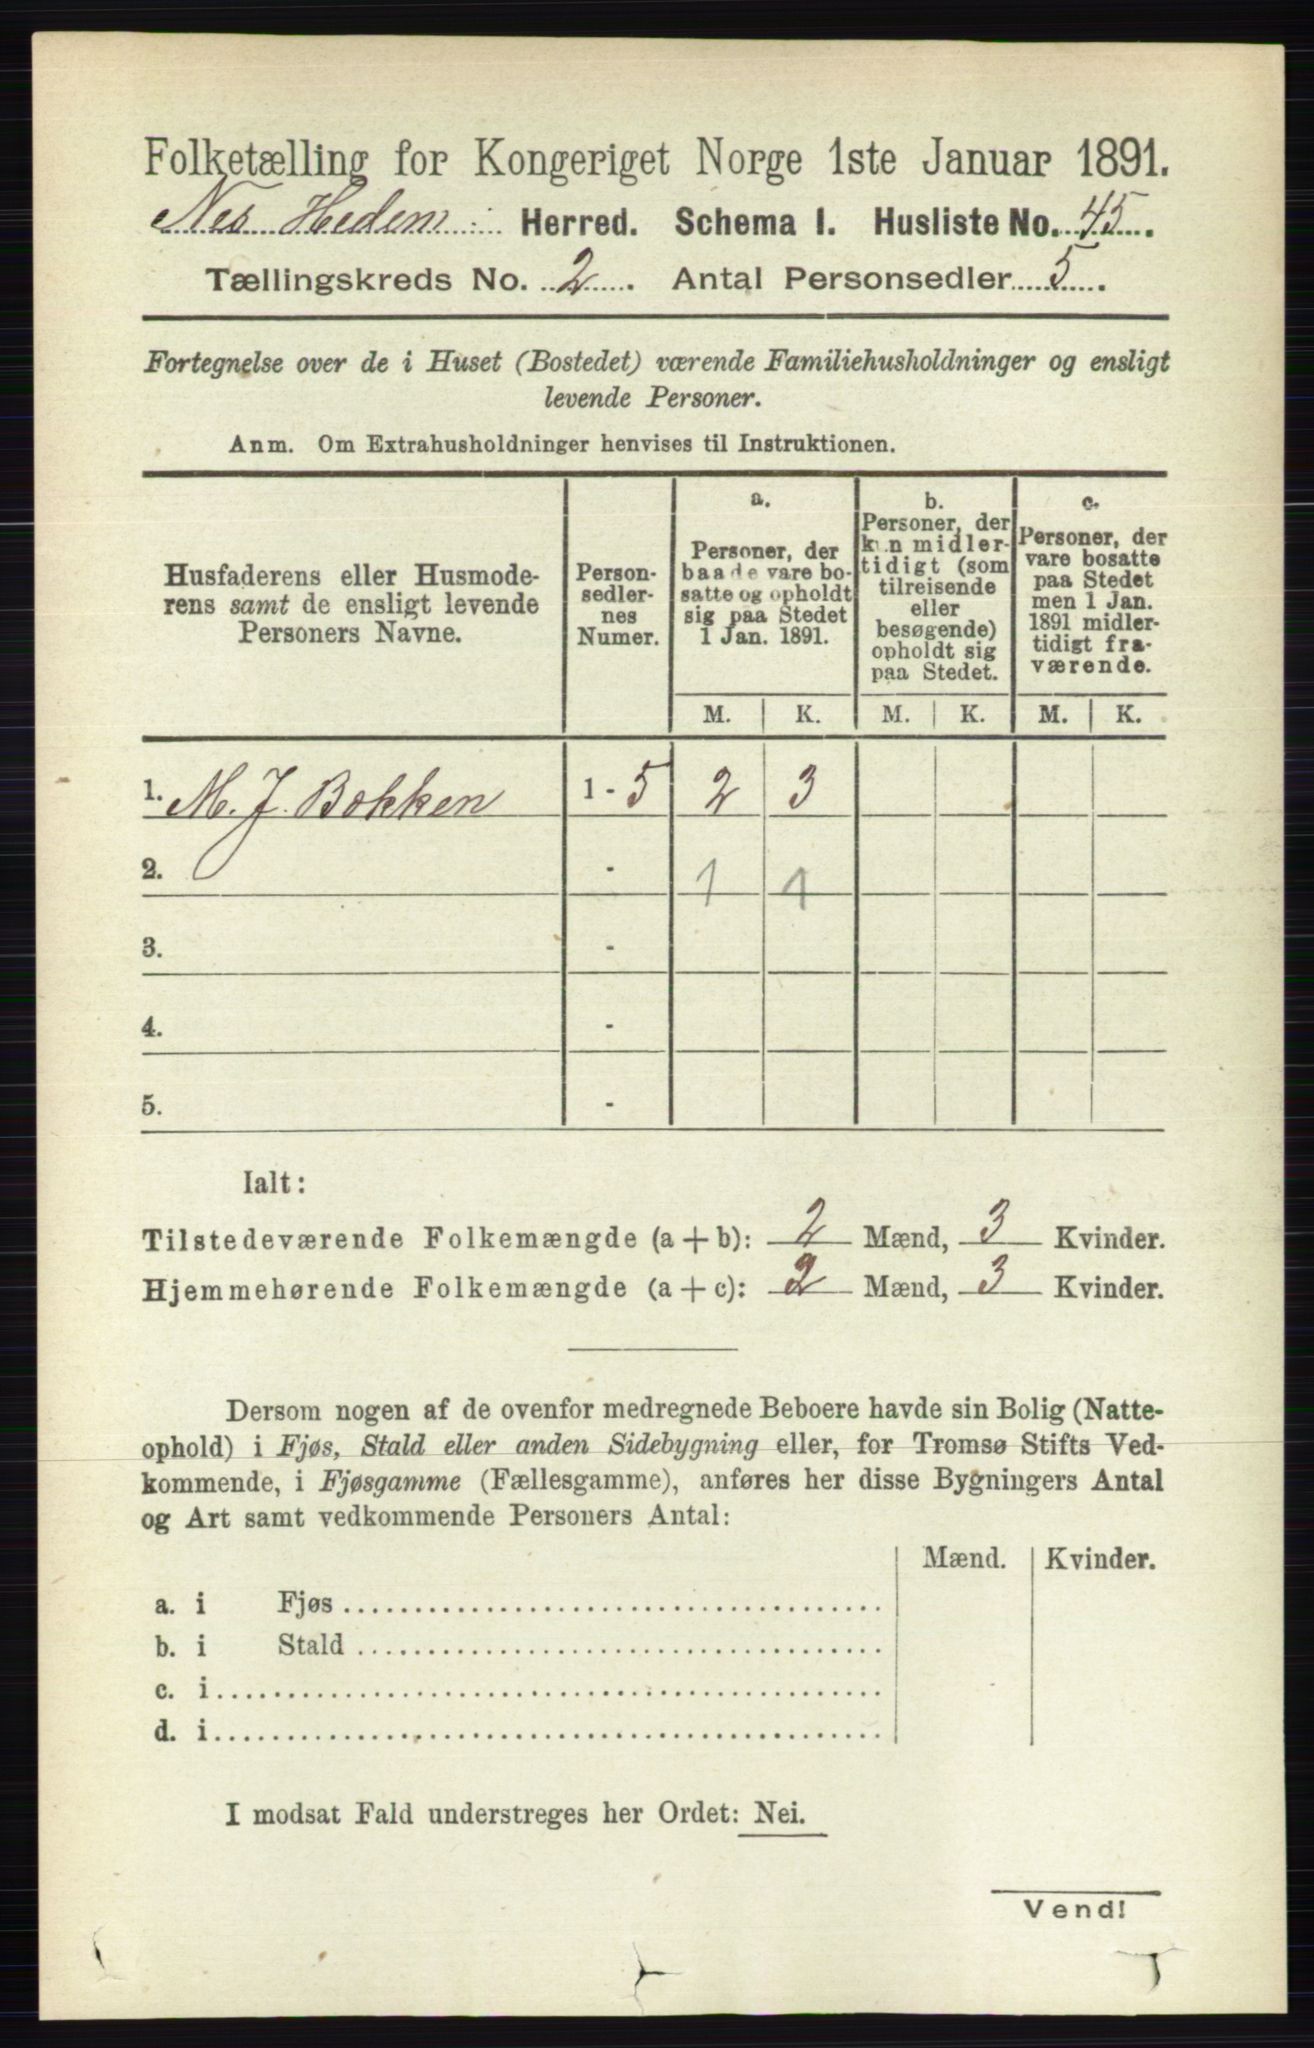 Folketælling for Kongeriget Norge 1ste Januar 1891.
Nes Hedem: Herred. Schema I. Husliste No. 45.
Tællingskreds No. 2. Antal Personsedler 5.
Fortegnelse over de i Huset (Bostedet) værende Familiehusholdninger og ensligt
levende Personer.
Anm. Om Extrahusholdninger henvises til Instruktionen.
Husfaderens eller Husmode-
rens samt de ensligt levende
Personers Navne.
Person-
sedler-
nes
Numer.
a.
Personer, der
baade vare bo-
satte og opholdt
sig paa Stedet
1 Jan. 1891.
b.
Personer, der
kun midler-
tidigt (som
tilreisende
eller
besøgende)
opholdt sig
paa Stedet.
c.
Personer, der
vare bosatte
paa Stedet
men 1 Jan.
1891 midler-
tidigt fra-
værende.
M. K. M. K. M. K.
1. M. J. Bokken 1 - 5 2 3
2. - 1 1
3. -
4. -
5. -
Ialt:
Tilstedeværende Folkemængde (a + b): 2 Mænd, 3 Kvinder.
Hjemmehørende Folkemængde (a + c): 2 Mænd, 3 Kvinder.
Dersom nogen af de ovenfor medregnede Beboere havde sin Bolig (Natte-
ophold) i Fjøs, Stald eller anden Sidebygning eller, for Tromsø Stifts Ved-
kommende, i Fjøsgamme (Fællesgamme), anføres her disse Bygningers Antal
og Art samt vedkommende Personers Antal:
Mænd. Kvinder.
a. i Fjøs
b. i Stald
c. i
d. i
I modsat Fald understreges her Ordet: Nei.
Vend!